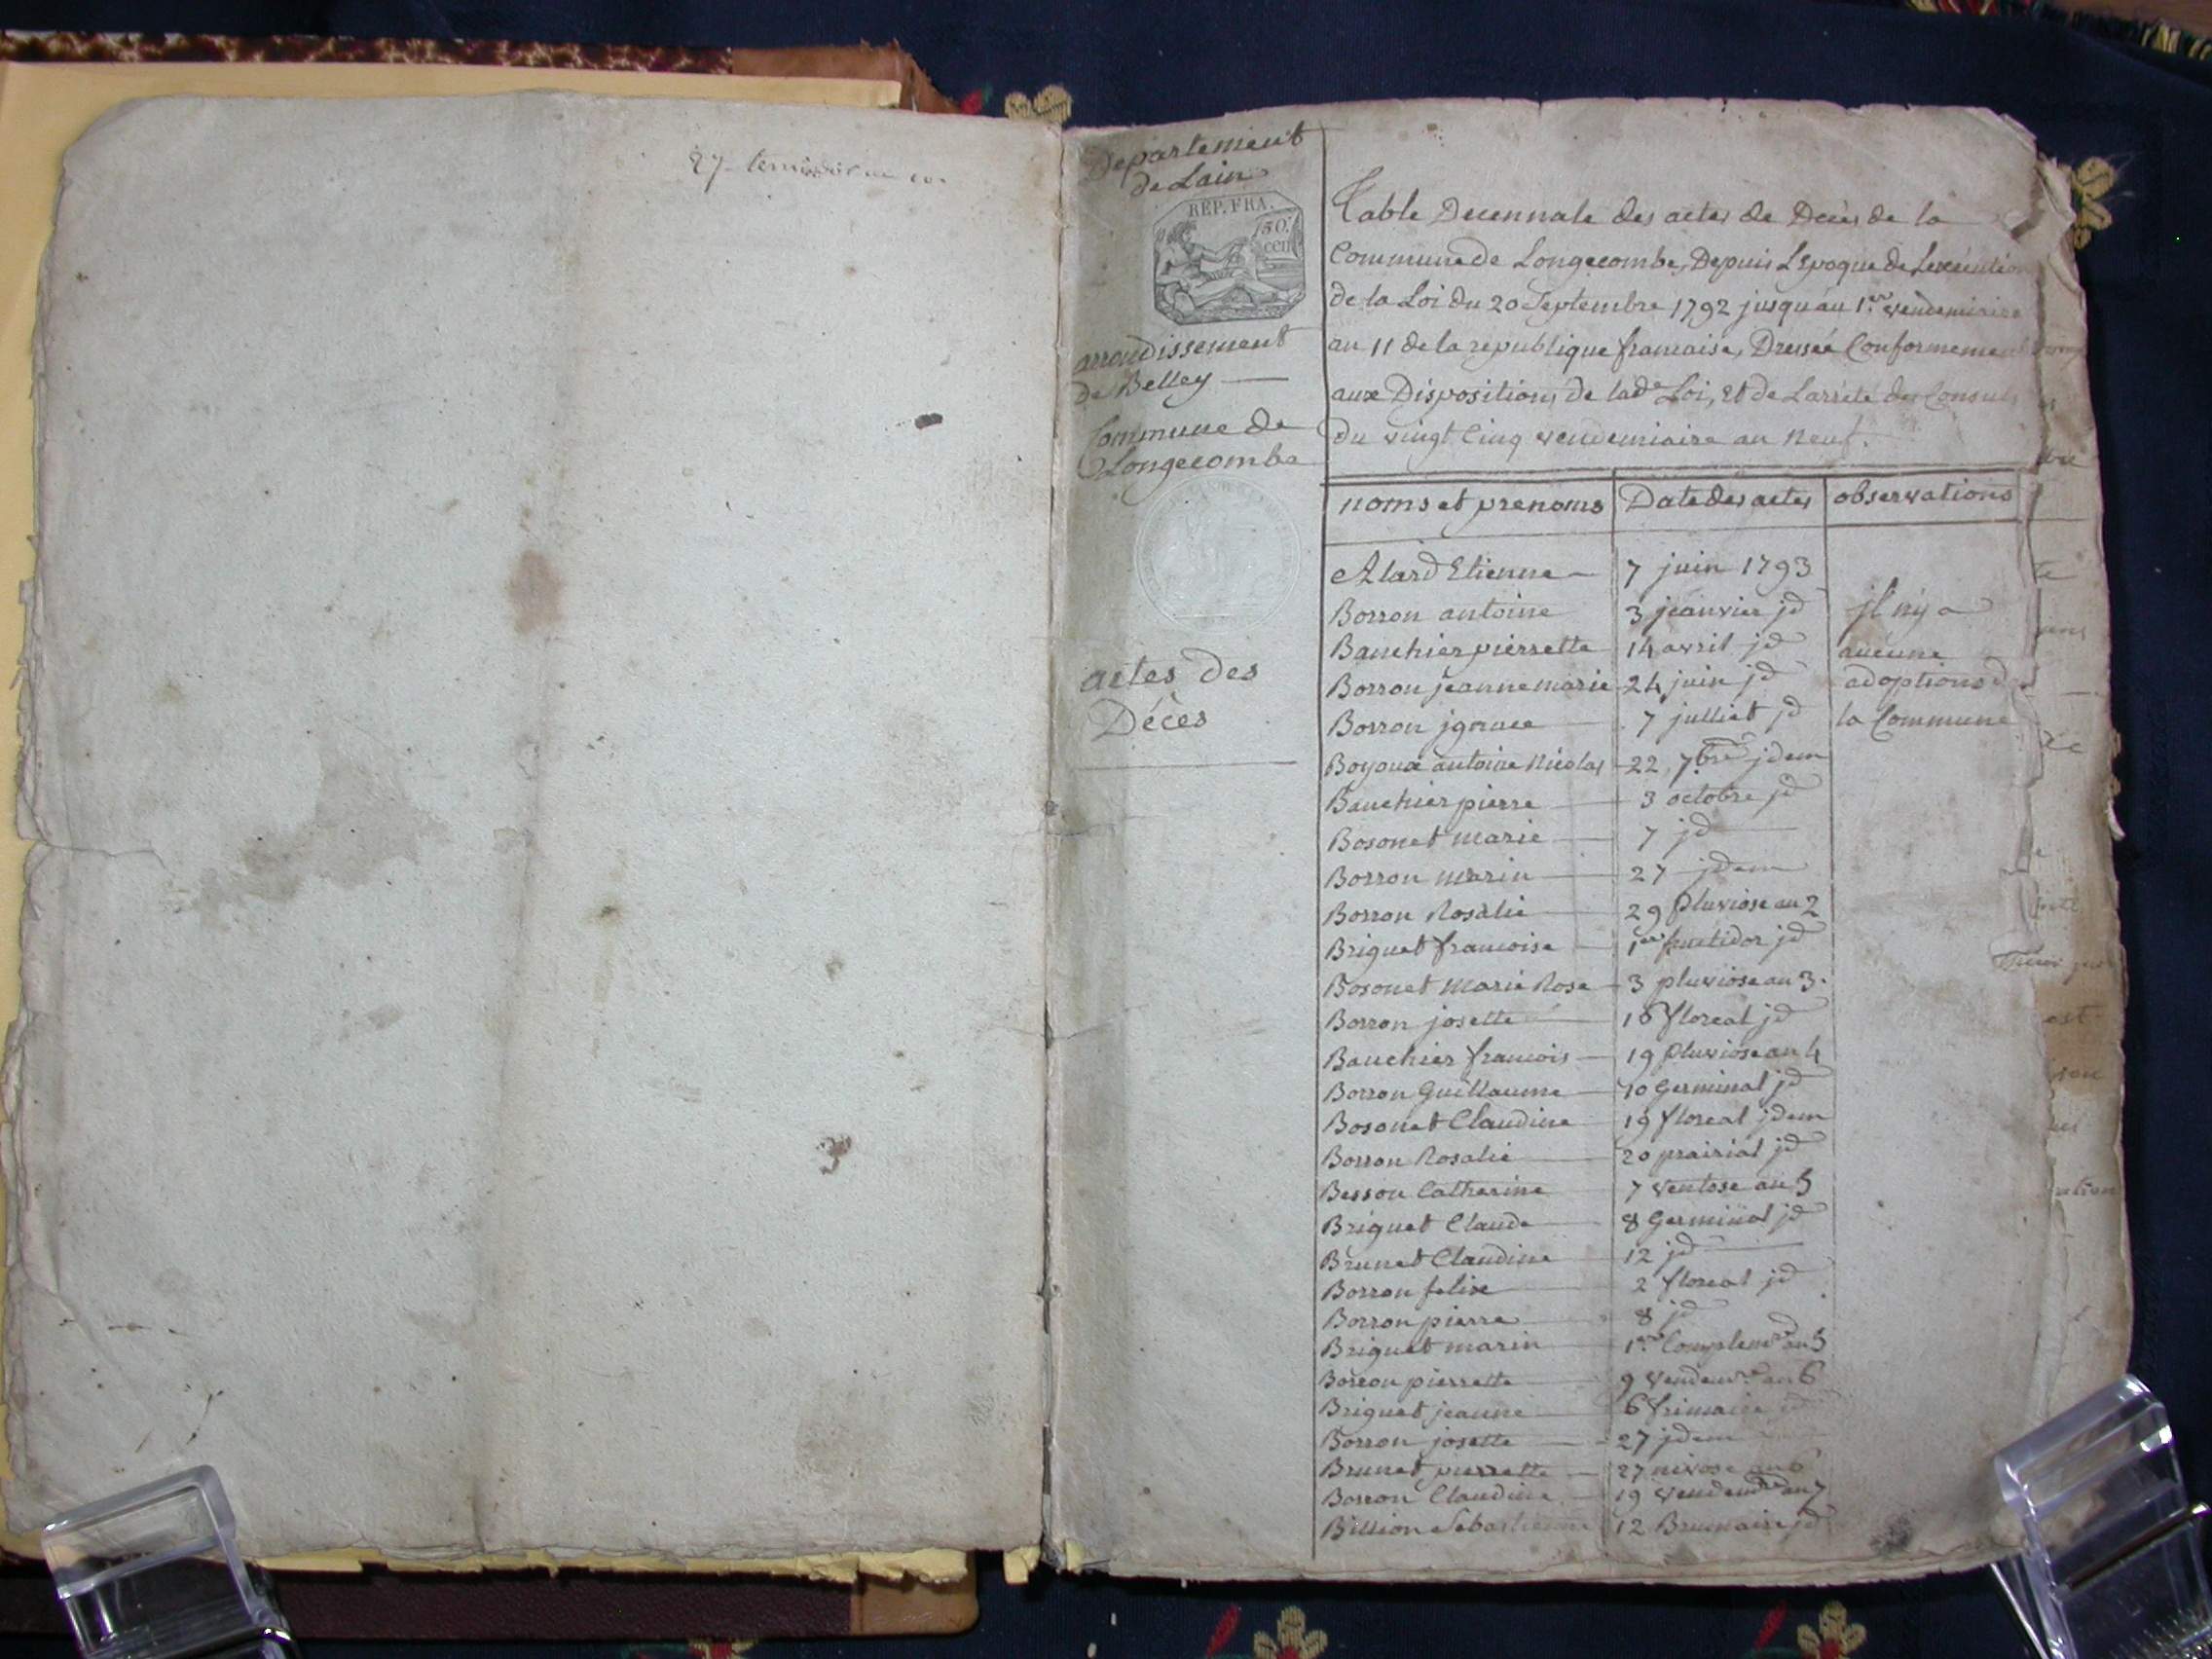 Departement
de Lain
REP. FRA.
50.
cen
arrondissement
de Belley
Commune de
Longecombe
actes des
Décès
Table Decennale des actes de Decès de la
Commune de Longecombe, Depuis L'Epoque de Lexécution
de la Loi du 20 Septembre 1792 jusqu'au 1.er vendemiaire
an 11 de la république francaise, Dressée Conformement
aux Dispositions de lad.e Loi, Et de Larrété des Consuls
Du vingt Cinq vendemiaire an neuf.
noms et prenoms Date des actes observations
Alard Etienne 7 juin 1793
Borron antoine 3 jeanvier jd jl ny a
Bauchier pierrette 14 avril jd aucune
Borron jeanne marie 24 juin jd adoptions de
Borron jgnace 7 julliet jd la Commune
Boyoux antoine Nicolas 22 7bre jdem
Bauchier pierre 3 octobre jd
Bosonet marie 7 jd
Borron marin 27 jdem
Borron Rosalie 29 pluviose an 2
Briguet francoise 1er fructidor jd
Bosonet marie Rose 3 pluviose an 3.
Borron josette 16 floreal jd
Bauchier francois 19 pluviose an 4
Borron Guillaume 10 Germinal jd
Bosonet Claudine 19 floreal jdem
Borron Rosalie 20 prairial jd
Besson Catherine 7 ventose an 5
Briguet Claude 8 Germinal jd
Brunet Claudine 12 jd
Borron felix 2 floreal jd
Borron pierre 8 jd
Briguet marin 1er Complemre an 5
Borron pierrette 9 vendemre an 6
Briguet jeanne 6 frimaire jd
Borron josette 27 jdem
Brunet pierrette 27 nivose an 6
Borron Claudine 19 vendemre an 7
Billion Sebastienne 12 Brumaire jd